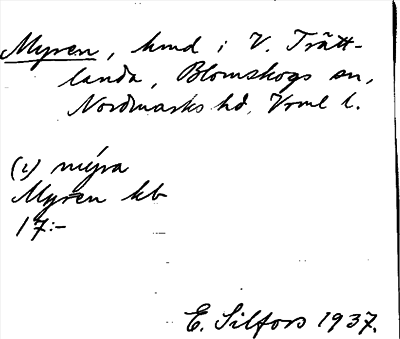 Myren, hmd i V. Trätt-
landa, Blomskogs sn,
Nordmarks hd, Vrml l.
(i) my̆ra
Myren kb
17:-
E. Silfors 1937.